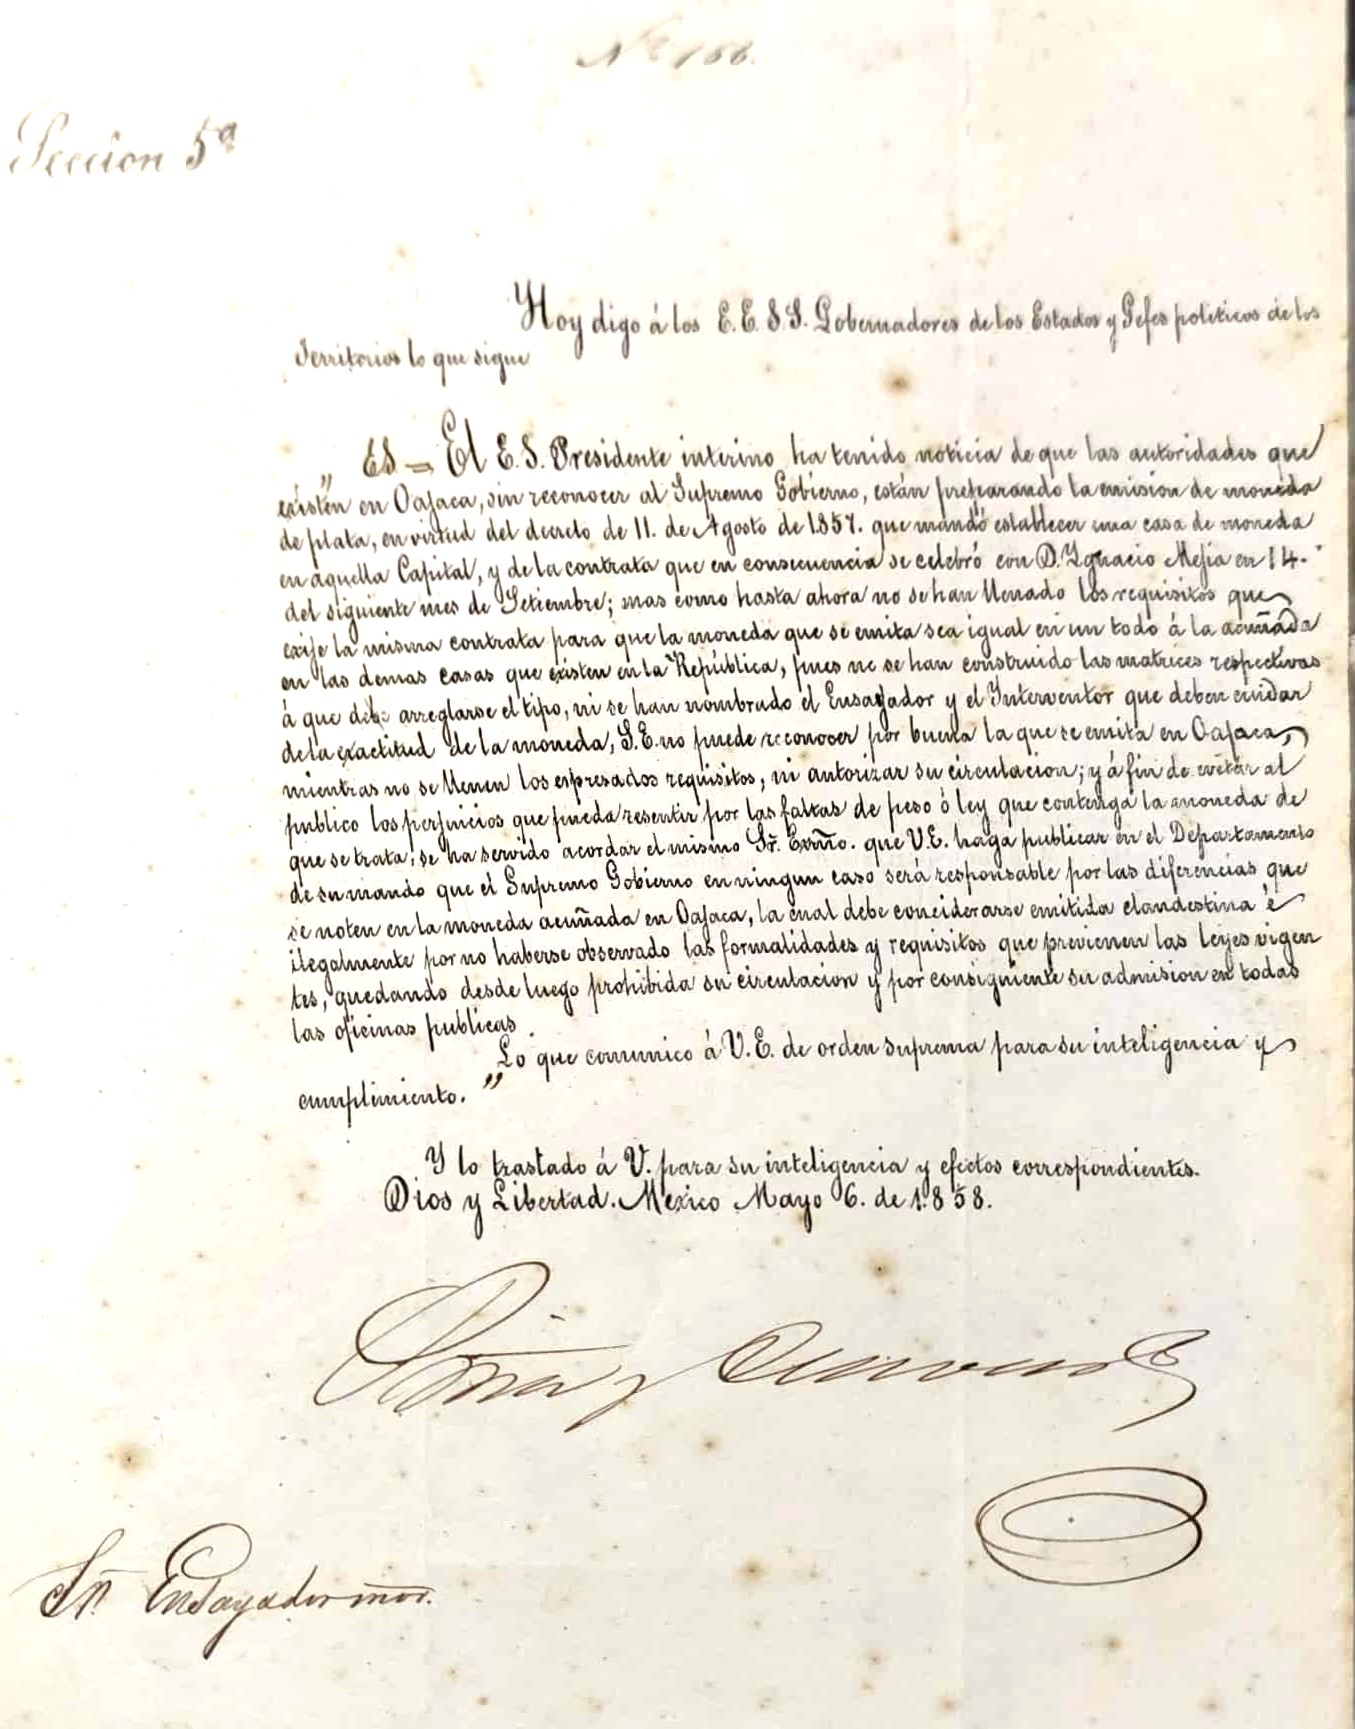 Nº 166.
Seccion 5ª
Hoy digo á los E.E. S.S. Gobernadores de los Estados y Gefes politicos de los
Territorios lo que sigue
„ ES = El E. S. Presidente interino ha tenido noticia de que las autoridades que
existen en Oajaca, sin reconocer al Supremo Gobierno, están preparando la emision de moneda
de plata, en virtud del decreto de 11. de Agosto de 1857. que mandó establecer una casa de moneda
en aquella Capital, y de la contrata que en consecuencia se celebró con D. Ygnacio Mejia en 14.
del siguiente mes de Setiembre; mas como hasta ahora no se han llenado los requisitos que
exije la misma contrata para que la moneda que se emita sea igual en un todo á la acuñada
en las demas casas que existen en la República, pues no se han construido las matrices respectivas
á que debe arreglarse el tipo, ni se han nombrado el Ensayador y el Interventor que deben cuidar
de la exactitud de la moneda, S. E. no puede reconocer por buena la que se emita en Oajaca,
mientras no se llenen los espresados requisitos, ni autorizar su circulacion; y á fin de evitar al
publico los perjuicios que pueda resentir por las faltas de peso ó ley que contenga la moneda de
que se trata; se ha servido acordar el mismo Sr. Exmo. que V. E. haga publicar en el Departamento
de su mando que el Supremo Gobierno en ningun caso será responsable por las diferencias que
se noten en la moneda acuñada en Oajaca, la cual debe conciderarse emitida clandestina é
ilegalmente por no haberse observado las formalidades y requisitos que previenen las leyes vigen
tes, quedando desde luego prohibida su circulacion y por consiguiente su admision en todas
las oficinas publicas.
Lo que comunico á V. E. de orden suprema para su inteligencia y
cumplimiento. ”
Y lo traslado á V. para su inteligencia y efectos correspondientes.
Dios y Libertad. Mexico Mayo 6. de 1858.
Sr. Ensayador mor.